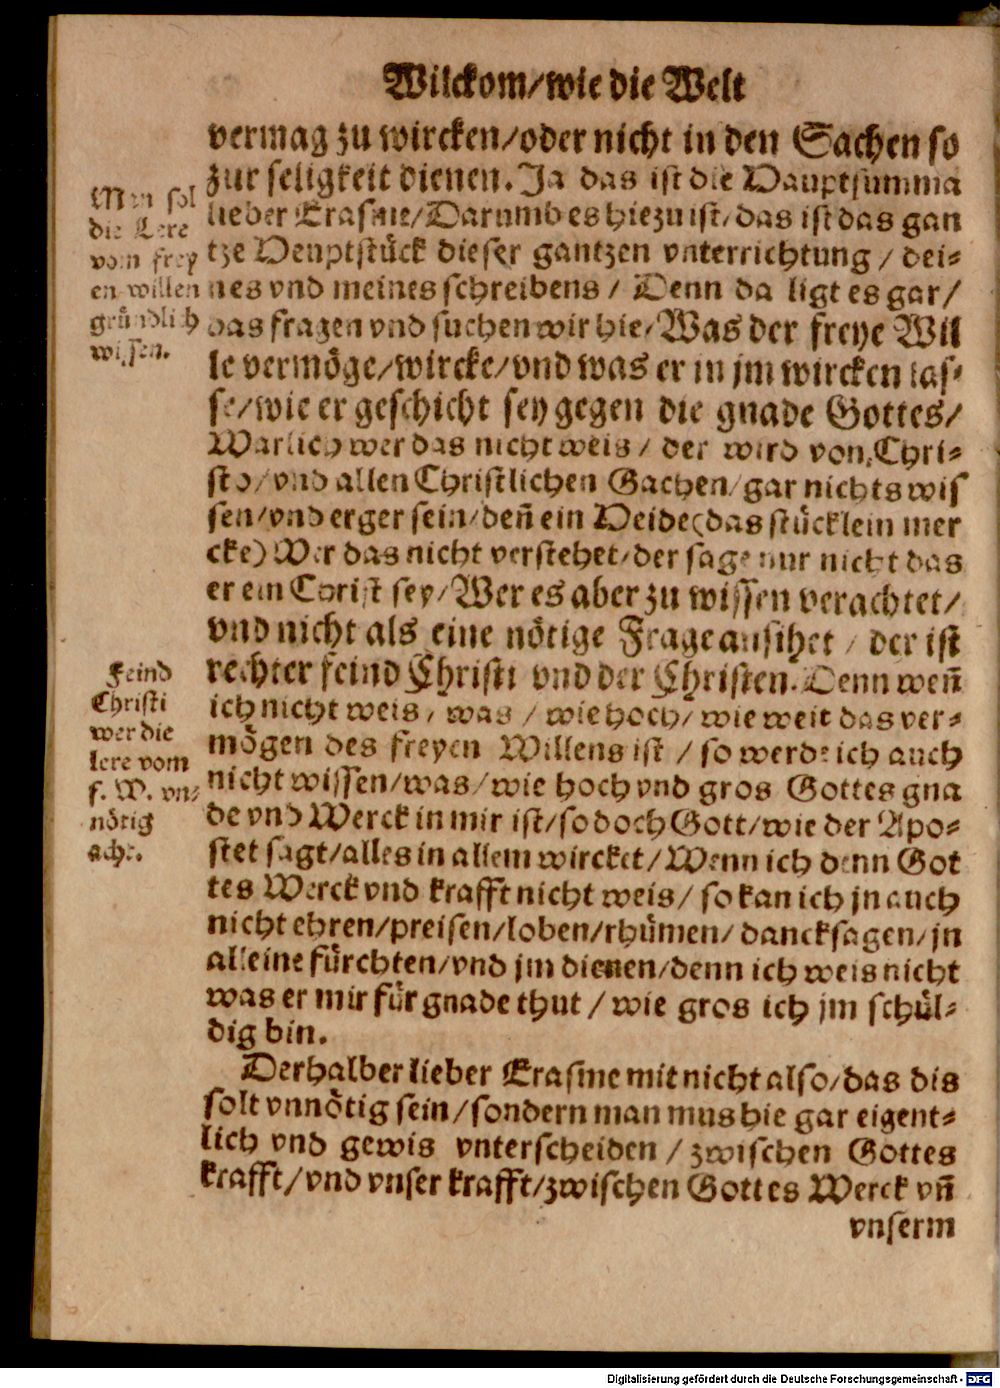 Wilckom/wie die Welt
vermag zu wircken/oder nicht in den Sachen so
zur seligkeit dienen. Ja das ist die Hauptsumma
lieber Erasme/Darumb es hiezu ist/das ist das gan
tze Heuptstück dieser gantzen vnterrichtung/dei-
nes vnd meines schreibens/Denn da ligt es gar/
das fragen vnd suchen wir hie/Was der freye Wil
le vermöge/wircke/vnd was er in jm wircken las-
se/wie er geschicht sey gegen die gnade Gottes/
Warlich wer das nicht weis/der wird von Chri-
sto/vnd allen Christlichen Sachen/gar nichts wis
sen/vnd erger sein/deñ ein Heide(das stücklein mer
cke) Wer das nicht verstehet/der sage nur nicht das
er ein Christ sey/Wer es aber zu wissen verachtet/
vnd nicht als eine nötige Frage ansihet/der ist
rechter feind Christi vnd der Christen. Denn weñ
ich nicht weis, was/wie hoch/wie weit das ver-
mögen des freyen Willens ist/so werde ich auch
nicht wissen/was/wie hoch vnd gros Gottes gna
de vnd Werck in mir ist/so doch Gott/wie der Apo-
stet sagt/alles in allem wircket/Wenn ich denn Got
tes Werck vnd krafft nicht weis/so kan ich jn auch
nicht ehren/preisen/loben/rhümen/dancksagen/jn
alleine fürchten/vnd jm dienen/denn ich weis nicht
was er mir für gnade thut/wie gros ich jm schül-
dig bin.
Derhalber lieber Erasme mit nicht also/das dis
solt vnnötig sein/sondern man mus hie gar eigent-
lich vnd gewis vnterscheiden/zwischen Gottes
krafft/vnd vnser krafft/zwischen Gottes Werck vñ
vnserm
Man sol
die Lere
vom frey
en willen
gründlich
wissen.
Feind
Christi
wer die
lere vom
f. W. vn-
nötig
acht.
Digitalisierung gefördert durch die Deutsche Forschungsgemeinschaft - DFG